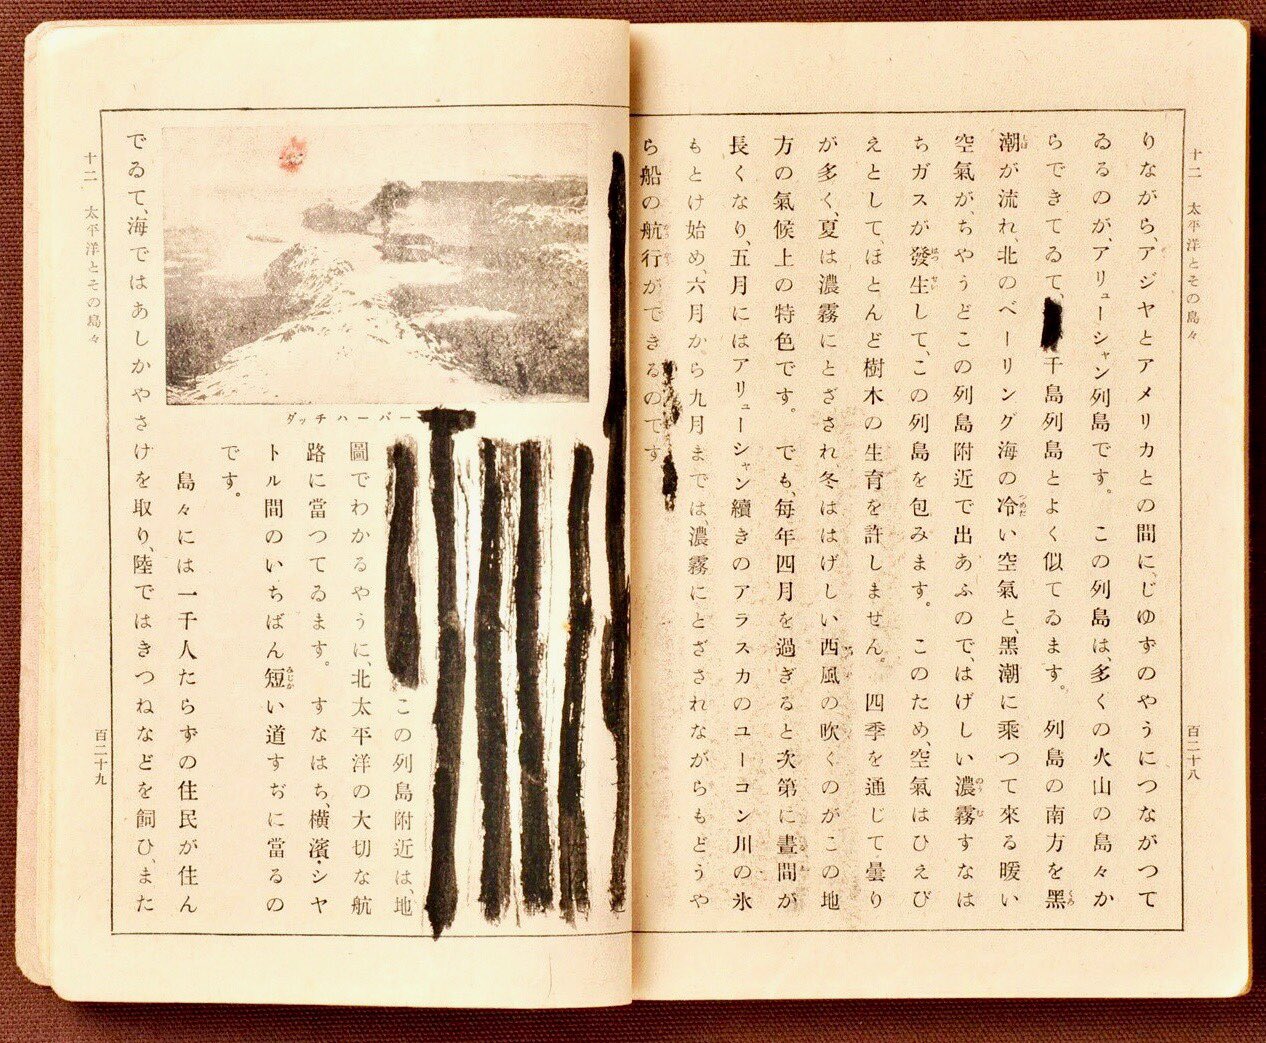 十二 太平洋とその島々
百二十八
りながら、アジヤとアメリカとの間に、じゆずのやうにつながつて
ゐるのが、アリューシャン列島です。この列島は、多くの火山の島々か
らできてゐて、千島列島とよく似てゐます。列島の南方を黑
潮が流れ、北のベーリング海の冷い空氣と、黑潮に乘つて來る暖い
空氣が、ちやうどこの列島附近で出あふので、はげしい濃霧すなは
ちガスが發生して、この列島を包みます。このため、空氣はひえび
えとして、ほとんど樹木の生育を許しません。四季を通じて曇り
が多く、夏は濃霧にとざされ、冬ははげしい西風の吹くのがこの地
方の氣候上の特色です。でも、每年四月を過ぎると次第に晝間が
長くなり、五月にはアリューシャン續きのアラスカのユーコン川の氷
もとけ始め、六月から九月までは、濃霧にとざされながらもどうや
ら船の航行ができるのです
ダッチハーバー
この列島附近は、地
圖でわかるやうに、北太平洋の大切な航
路に當つてゐます。すなはち、橫濱・シヤ
トル間のいちばん短い道すぢに當るの
です。
島々には一千人たらずの住民が住ん
でゐて、海ではあしかやさけを取り、陸ではきつねなどを飼ひ、また
十二 太平洋とその島々
百二十九